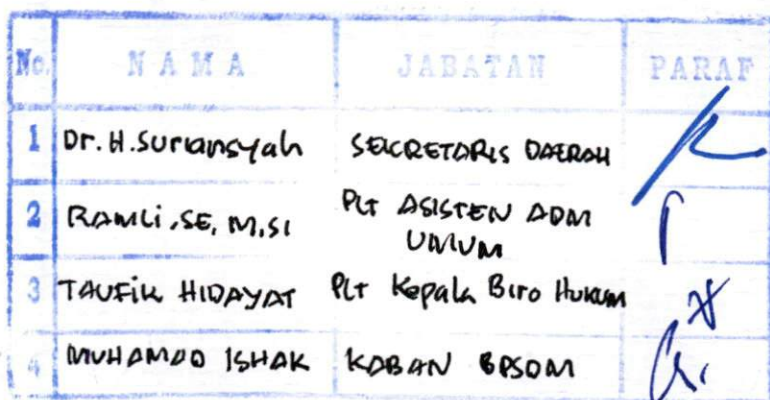 No. NAMA JABATAN PARAF
1 Dr. H. Suriansyah SEKRETARIS DAERAH
2 RAMLI, SE, M.SI PLT ASISTEN ADM
UMUM
3 TAUFIK HIDAYAT PLT Kepala Biro HUKUM
4 MUHAMAD ISHAK KABAN BPSDM